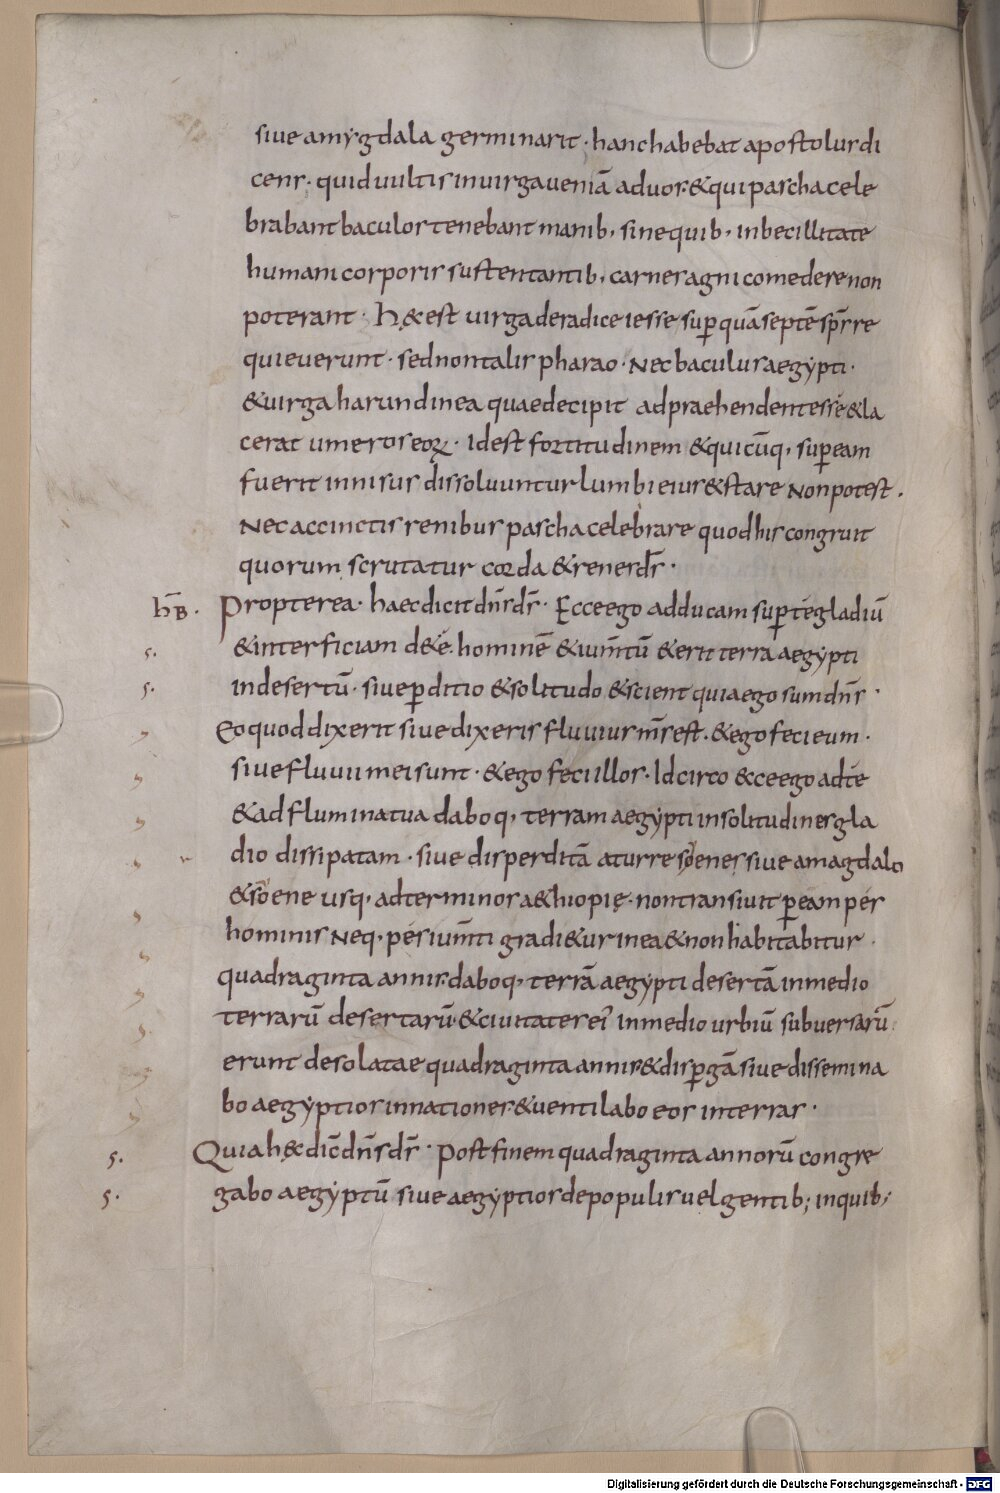 siue amygdala germinarit · hanc habebat apostolus di
cens · quid uultis in uirga ueniā ad uos · & qui pascha cele
brabant baculos tenebant manib; sine quib; inbecillitate
humani corporis sustentantib; carnes agni comedere non
poterant · H&̨c est uirga de radice iesse sup quā septē sp̄s re
quieuerunt · sed non talis pharao · Nec baculus aegypti ·
& uirga harundinea quae decipit adpraehendentes sé & la
cerat umeros eoꝝ · Id est fortitudinem & quicūq; sup eam
fuerit innisus dissoluuntur lumbi eius & stare Non potest ·
Nec accinctis renibus pascha celebrare quod his congruit
quorum scrutatur corda & renes d̄s ·
h̄B · Propterea · haec dicit dn̄s d̄s · Ecce ego adducam sup té gladiū
5. & interficiam de té · hominē & ium̄tū & erit terra aegypti
5. in desertū · siue pditio & solitudo & scient quia ego sum dn̄s ·
Eo quod dixerit siue dixeris fluuius m̄s est · & ego feci eum ·
siue fluuii mei sunt · & ego feci illos · Idcirco ecce ego ad té
& ad flumina tua daboq; terram aegypti in solitudines gla
dio dissipatam · siue disperditā a turre syenes siue a magdalo
& syene usq; ad terminos aethiopię · non transiuit p eam pés
hominis Neq; pés ium̄ti gradi&ur in ea & non habitabitur ·
quadraginta annis · daboq; terrā aegypti desertā in medio
terrarū desertarū · & ciuitates ei' in medio urbiū subuersarū
erunt desolatae quadraginta annis & dispgā siue dissemina
bo aegyptios in nationes & uentilabo eos in terras ·
5. Quia h&̨c dic̄ dn̄s d̄s · Post finem quadraginta annorū congre
5. gabo aegyptū siue aegyptios de populis uel gentib; in quib;
Digitalisierung gefördert durch die Deutsche Forschungsgemeinschaft · DFG